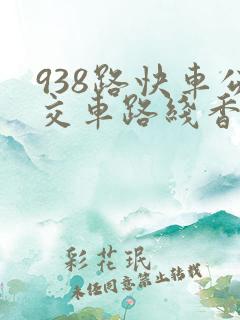 938路快車公
交車路綫香
彩花珉
未任同意禁止转载